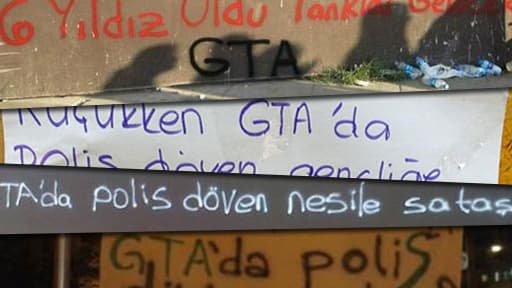 6 Yıldız Oldu Tanklar Gelecek
GTA
Küçükken GTA'da
Polis döven gençliğe
TA'da polis döven nesile sataş
GTA'da poliS